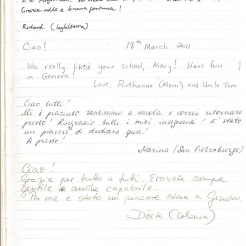 Grava-nelle e buona fortuna!
Richard (Inghilterra)
Ciao! 18th March 2011
We really liked your school, Mary! Have fun
in Genova!
Love, Ruthanne (Mom) and Uncle Tom
Ciao tutti!
Mi è piaciuto tantissimo a scuola e vorrei ritornare
presto! Ringrazio tutti i miei insegnanti! È stato
un piacere di studiare qua!
A presto!
Marina (San Pietroburgo)
Ciao!
Grazie per tutto a tutti. Eravate sempre
gentile e anche capabile.
Per me è stato un piacere stare a Genova.
Dörte (Colonia)